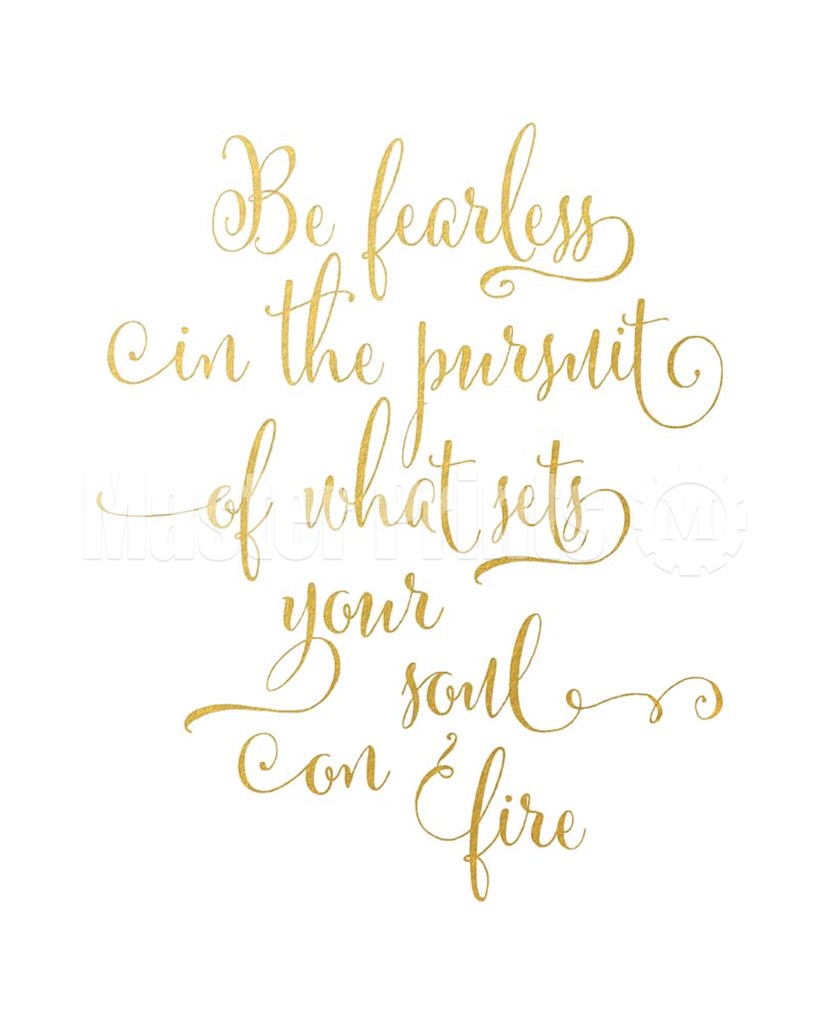 Be fearless
in the pursuit
of what sets
your
soul
on fire
Master Prints
M